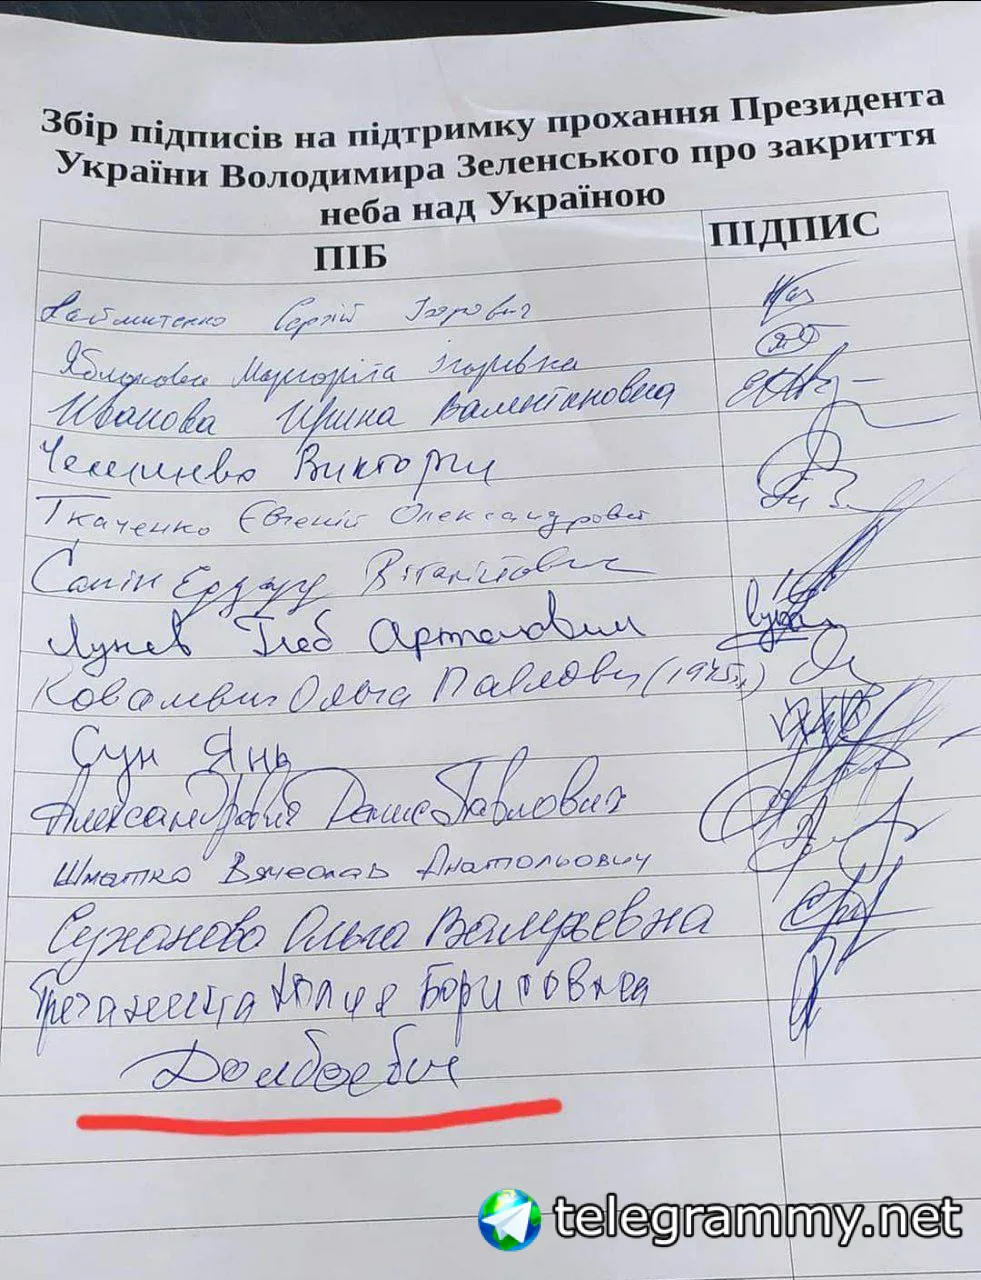 Збір підписів на підтримку прохання Президента
України Володимира Зеленського про закриття
неба над Україною
ПІБ ПІДПИС
Сергій Ігорович
Яблокова Маргоріта Ігорівна
Иванова Ирина Валентиновна
Виктория
Ткаченко Євгеній Олександрович
Віталійович
Лунев Глеб Артемович
Ольга Павлович (1945р.)
Сун Янь
Александрович Денис Павлович
Шматко Вячеслав Анатольович
Суханова Ольга Валерьевна
Юлия Борисовна
Долбоебы
telegrammy.net